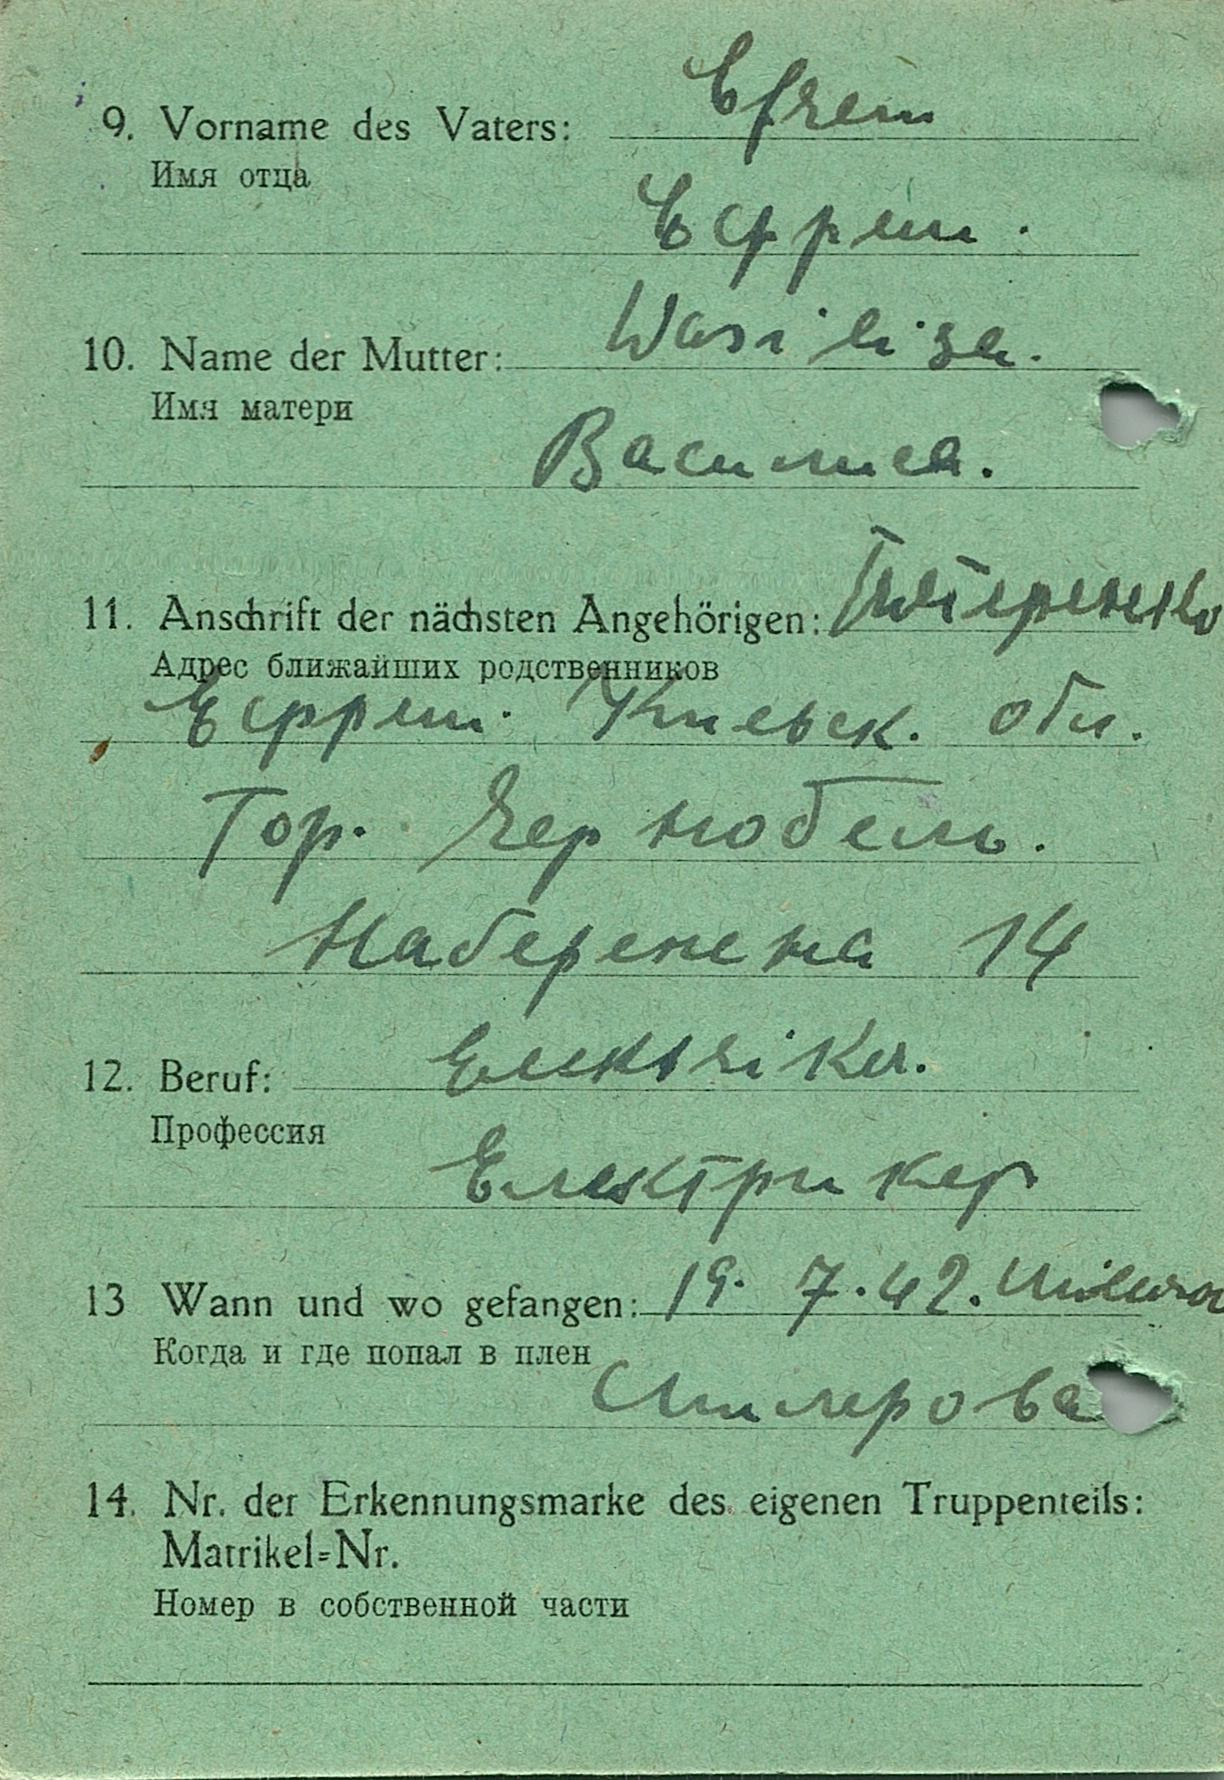 9. Vorname des Vaters: Efrem
Имя отца
Ефрем.
10. Name der Mutter: Wasilisa.
Имя матери
Василиса.
11. Anschrift der nächsten Angehörigen:
Адрес ближайших родственников
Ефрем. Киевск. обл.
Гор. Чернобель.
Набережна 14
12. Beruf:
Профессия
Електрикер
13 Wann und wo gefangen: 19. 7. 42.
Когда и где попал в плен
Милерова
14. Nr. der Erkennungsmarke des eigenen Truppenteils:
Matrikel=Nr.
Номер в собственной части